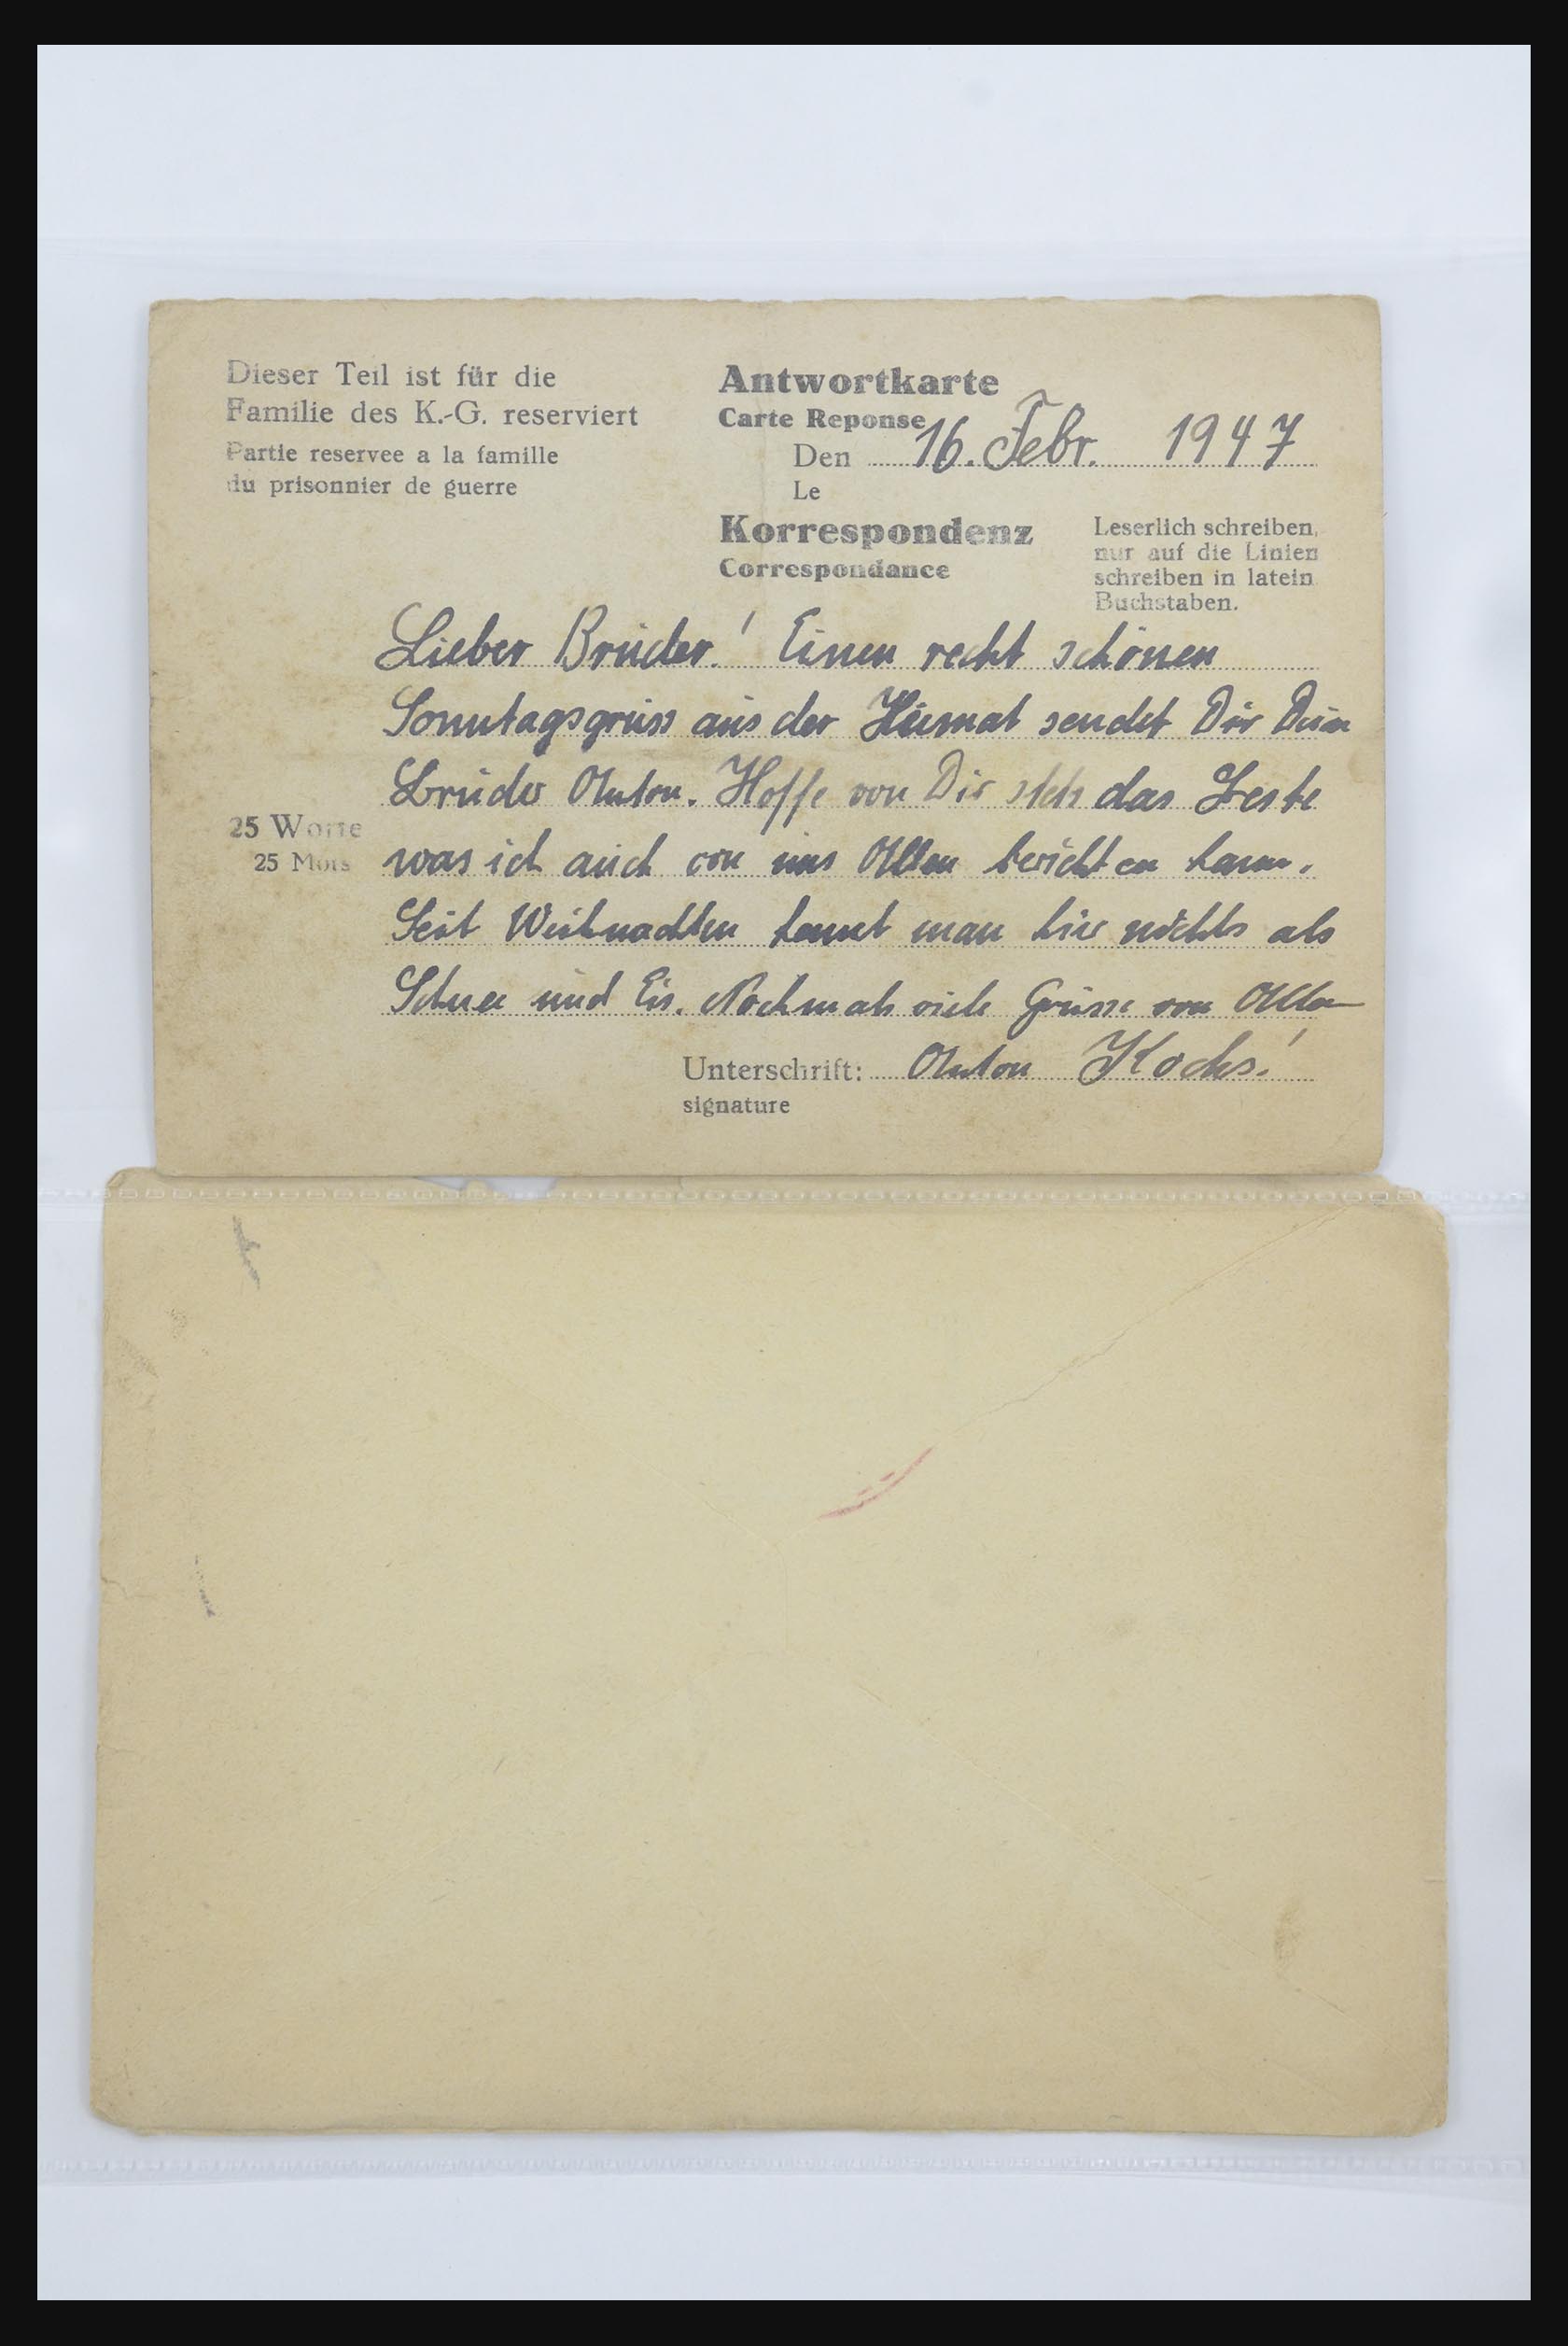 Dieser Teil ist für die
Familie des K.-G. reserviert
Partie reservee a la famille
du prisonnier de guerre
Antwortkarte
Carte Reponse
Den 16. Febr. 1947
Le
Korrespondenz
Correspondance
Leserlich schreiben,
nur auf die Linien
schreiben in latein
Buchstaben.
25 Worte
25 Mots
Lieber Bruder! Einen recht schönen
Sonntagsgruss aus der Heimat sendet Dir Dein
Bruder Anton. Hoffe von Dir stets das Beste
was ich auch von uns Allen berichten kann.
Seit Weihnachten kennt man hier nichts als
Schnee und Eis. Nochmals viele Grüsse von Allen
Unterschrift: Anton Kochs!
signature